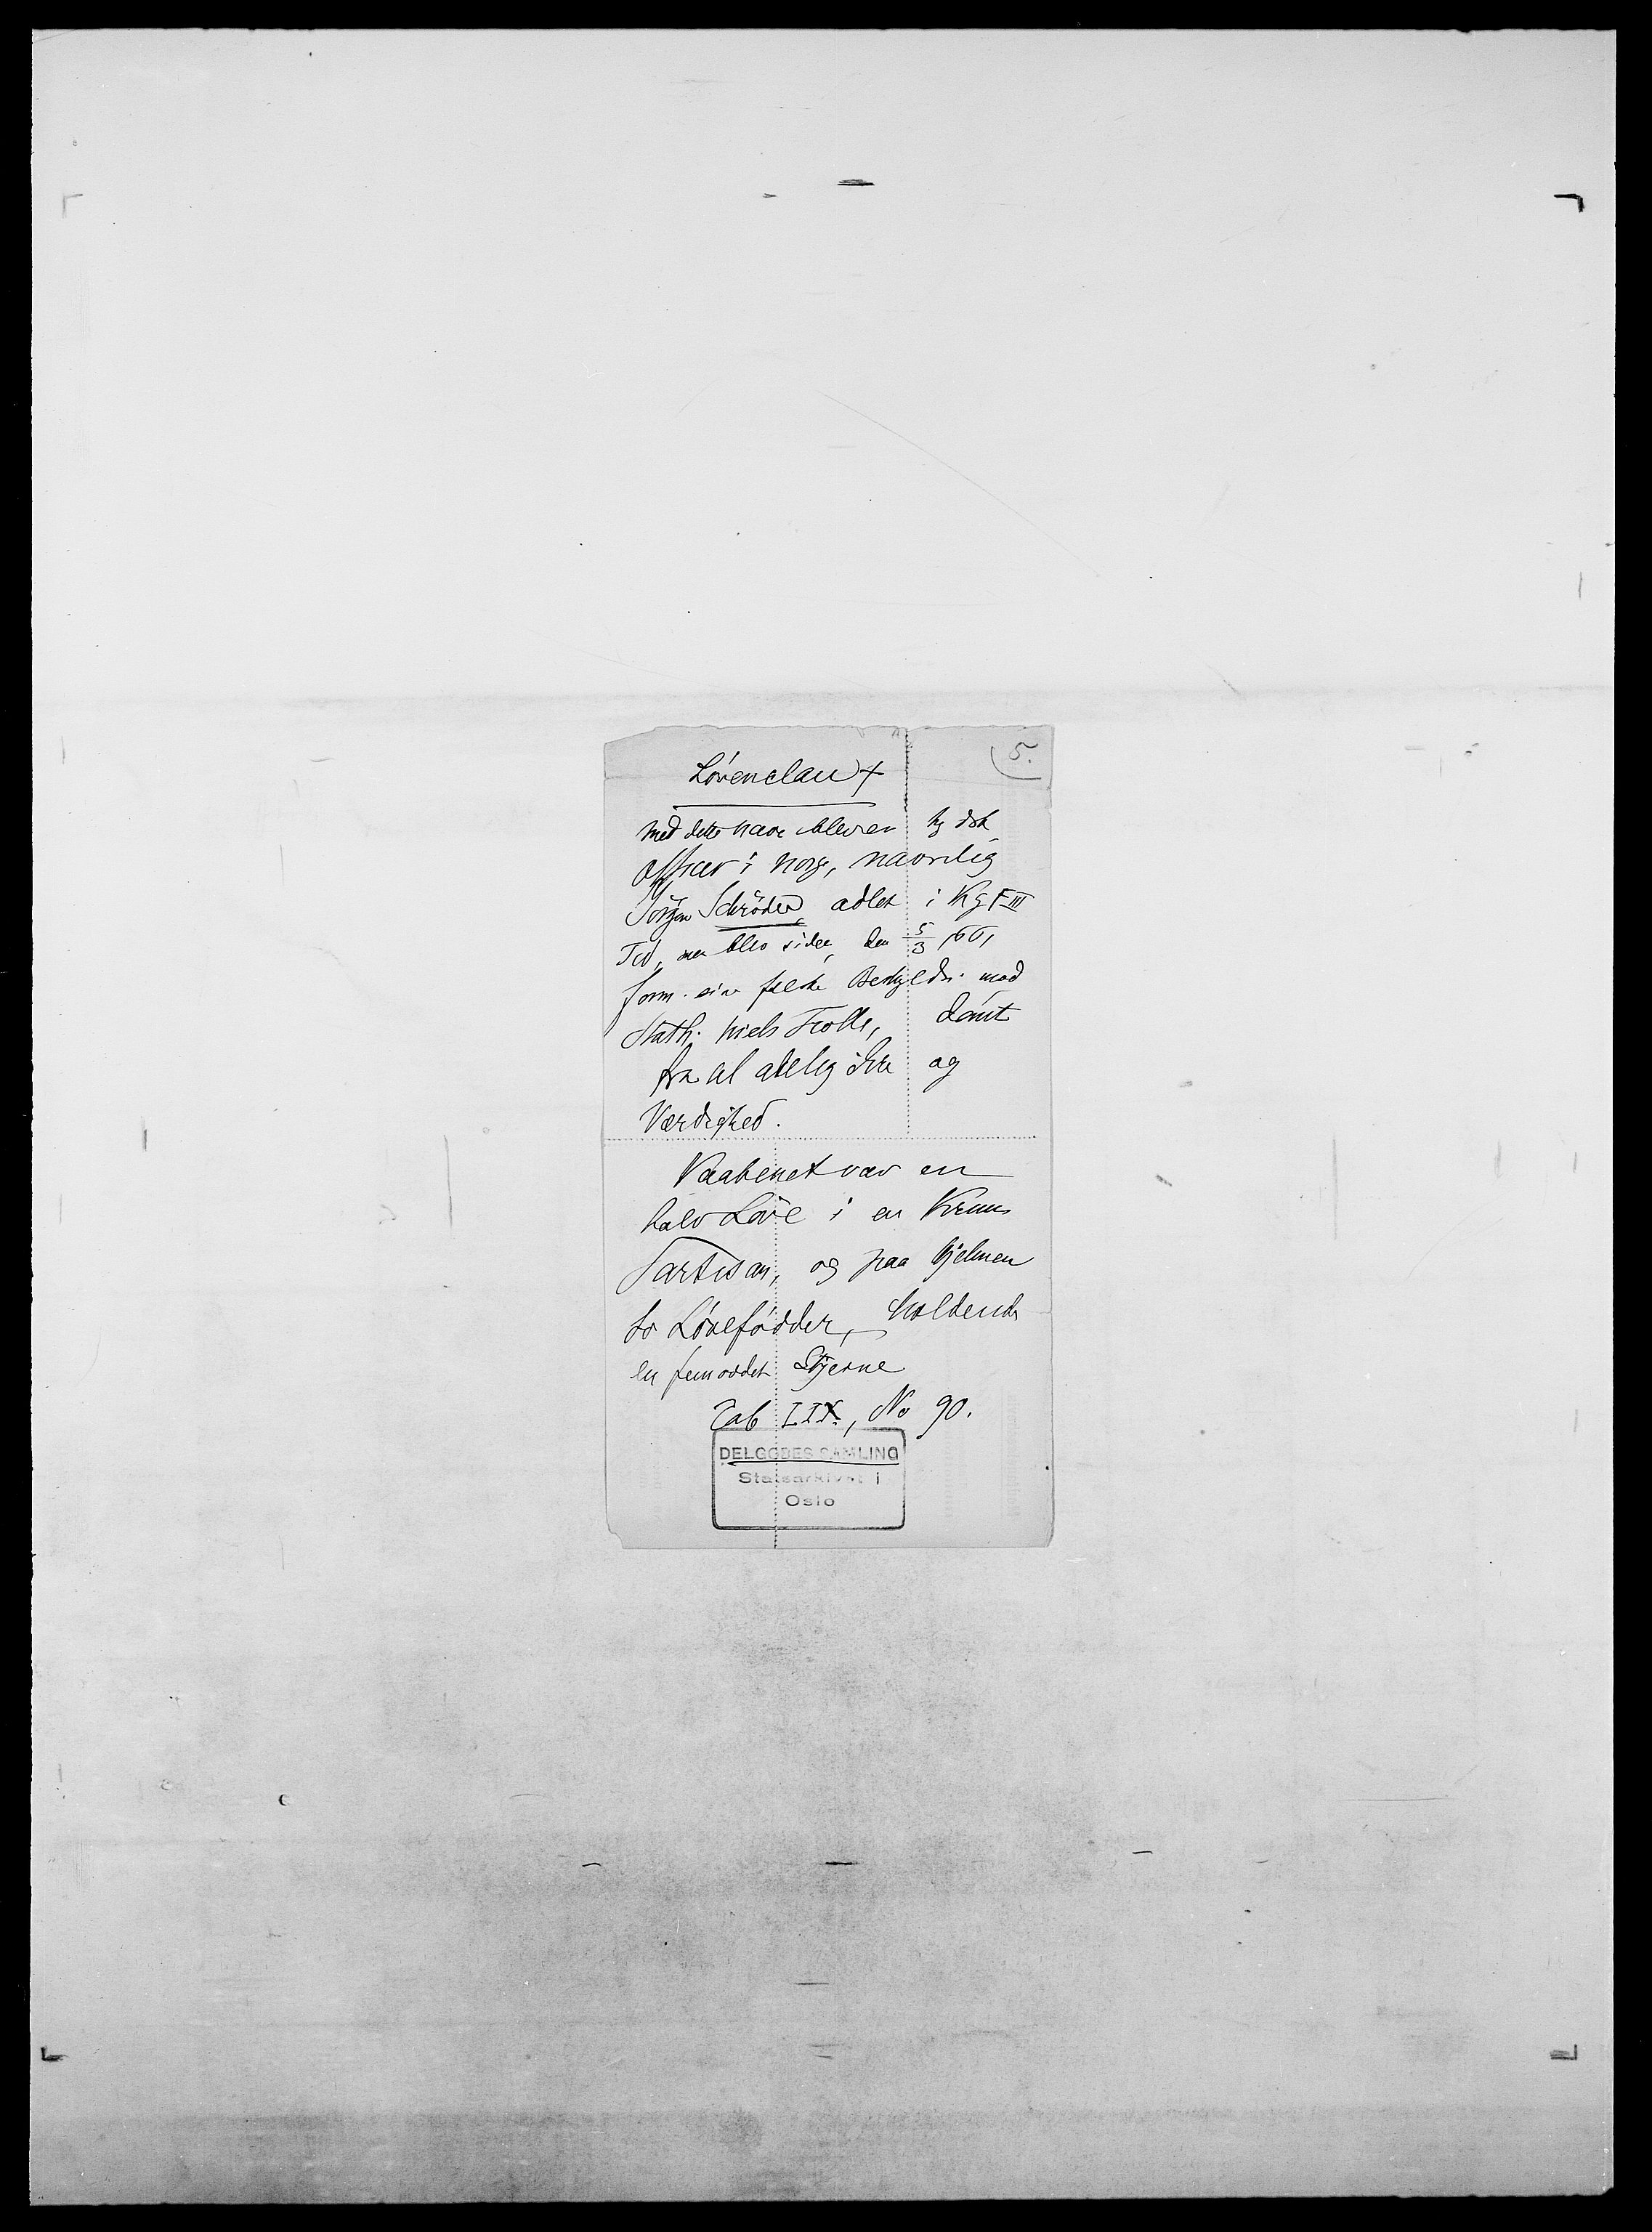 5.
Lövenclau +
Med dette Navn blev en tydsk
Officer i Norge, navnlig
Jörgen Schröder, adlet i Kg F III
Tid, men blev siden, den 5/3 661
form. sine falske Beskyldn. mod
Stath. Niels Trolle, dömt
fra al adelig Ære og
Værdighed.
Vaabenet var en
halv Löve i en
Partisan, og paa Hjelmen
to Lövefödder, holdende
en femoddet Stjerne
Tab LIX, No 90.
DELGOBES SAMLING
Statsarkivet i
Oslo